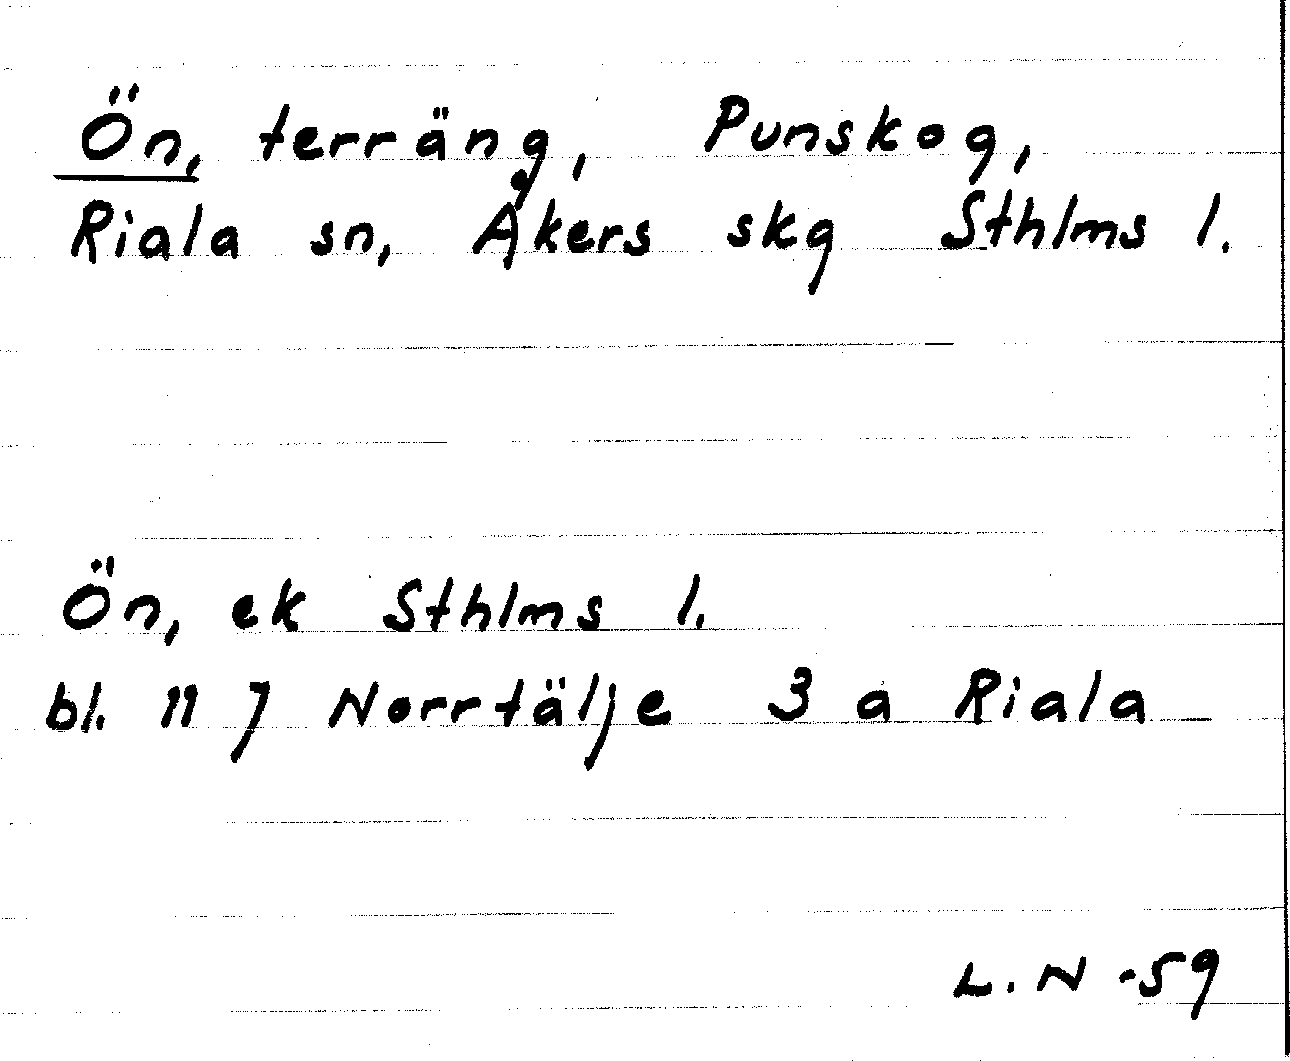 Ön, terräng, Punskog,
Riala sn, Åkers skg Sthlms l.
Ön, ek Sthlms l.
bl. 11 J Norrtälje 3 a Riala
L. N -59